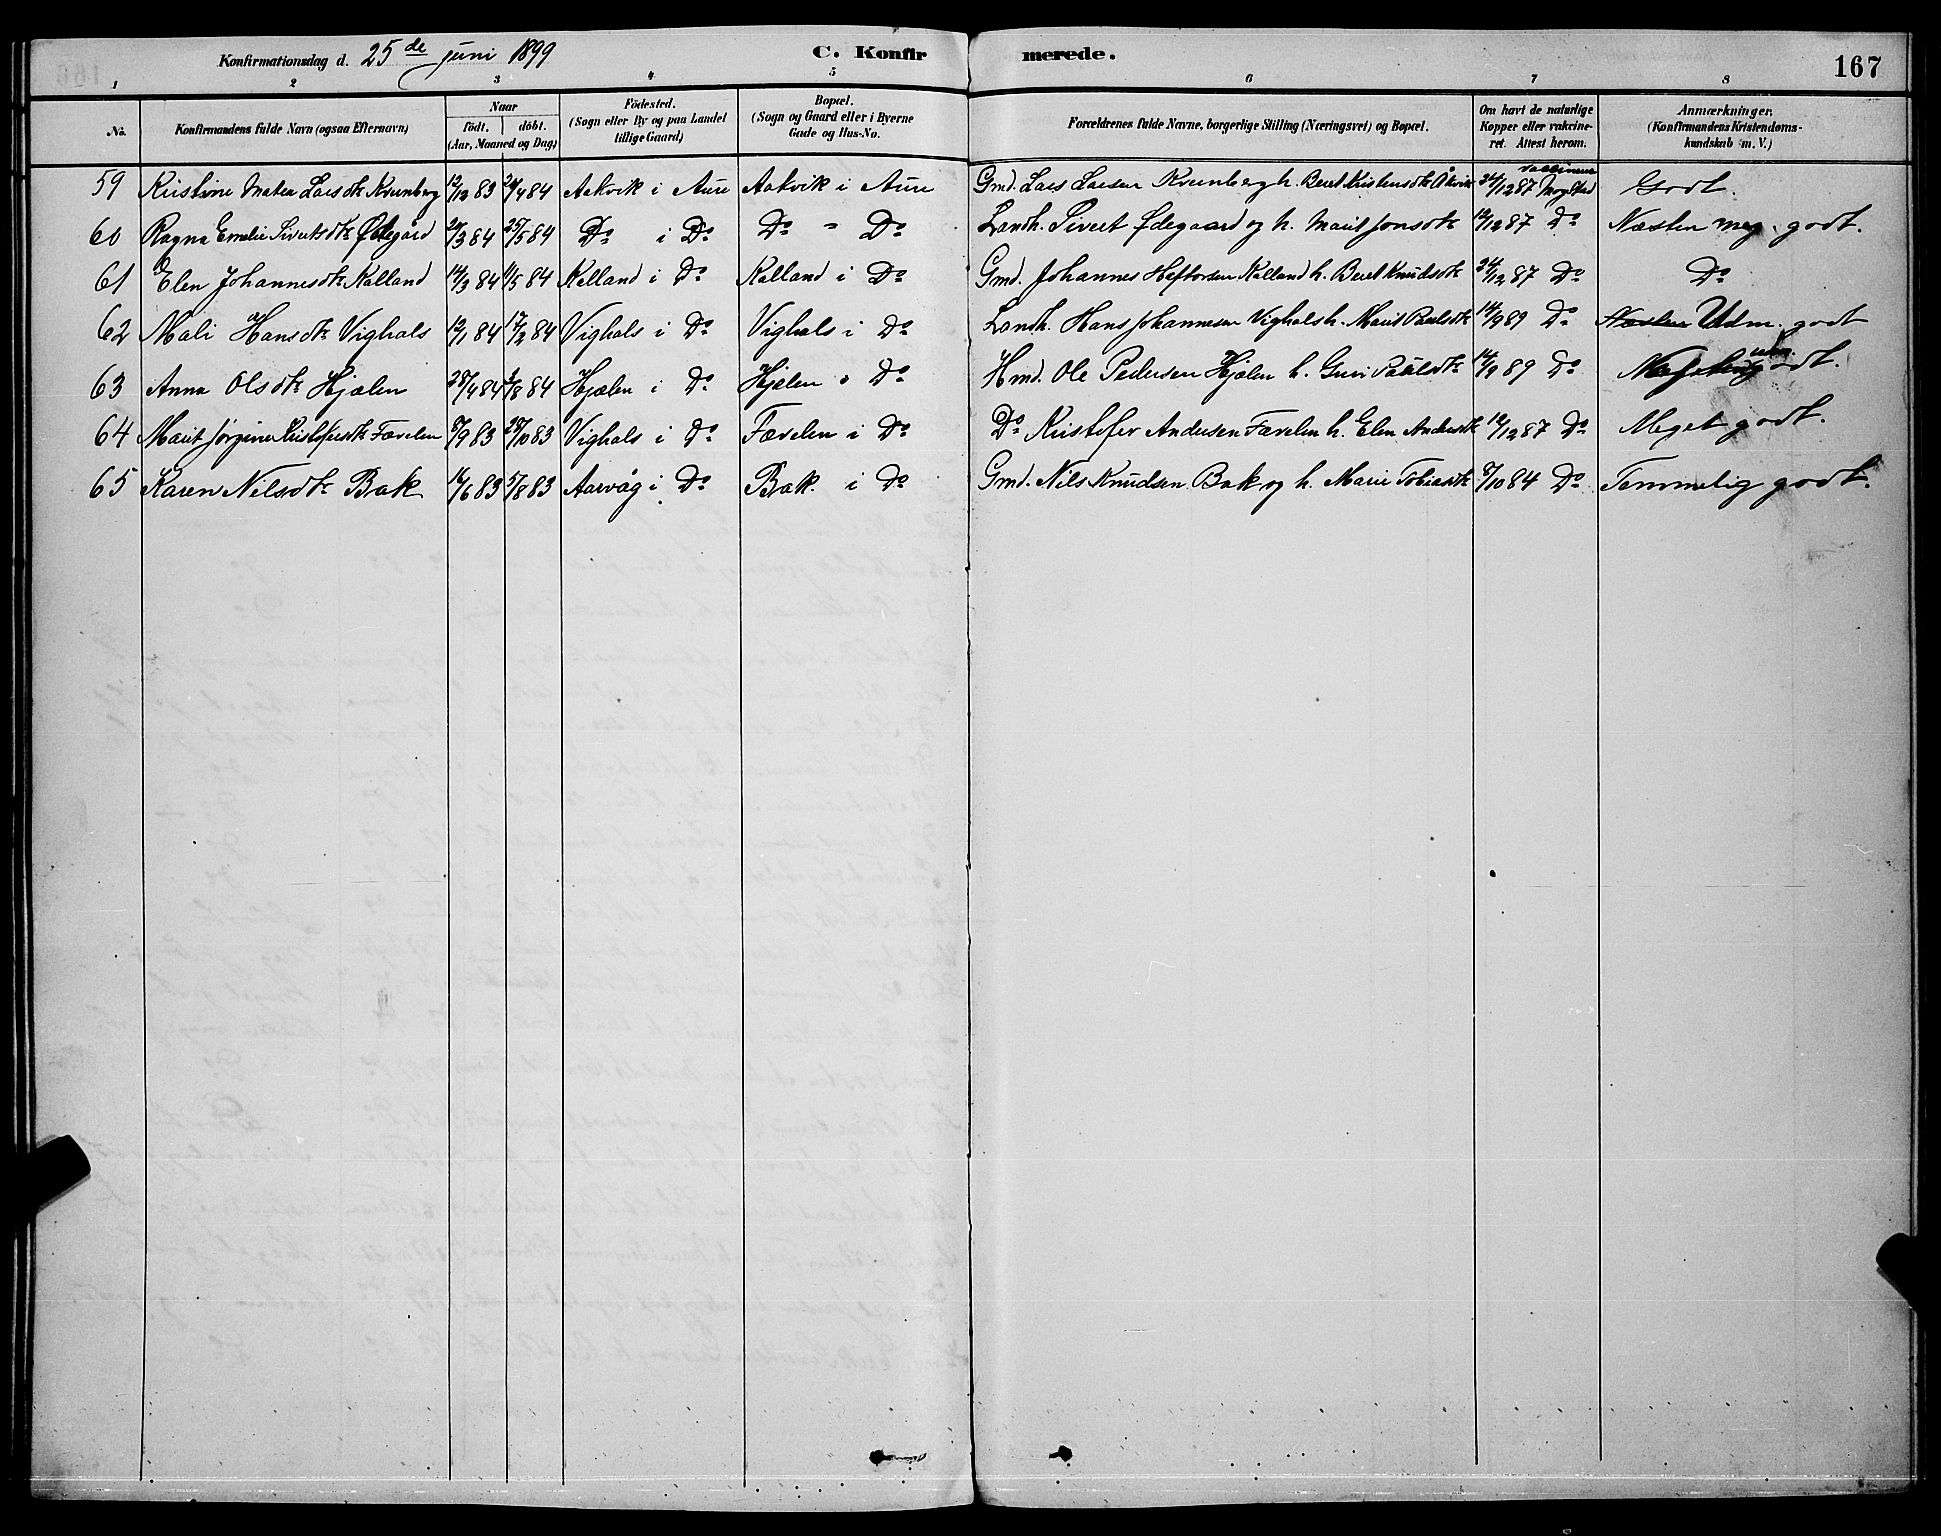 Konfirmationsdag d. 25de juni 1899 C. Konfirmerede. 167
1 2 3 4 5 6 7 8
No. Konfirmandens fulde Navn (ogsaa Efternavn) Naar födt. döbt. (Aar, Maaned og Dag) Födested. (Sogn eller By og paa Landet tillige Gaard) Bopæl. (Sogn og Gaard eller i Byerne Gade og Hus-No. Forældrenes fulde Navne, borgerlige Stilling (Næringsvei) og Bopæl. Om havt de naturlige Kopper eller vakcineret. Attest herom. Anmærkninger. (Konfirmandens Kristendomskundskab m. V.)
59 Kristine Matea Larsdtr Kvernberg 12/12 83 /4 84 Aakvik i Aure Aakvik i Aure Gmd. Lars Larsen Kvernberg h. Beret Kristensdtr Åkvik 24/12 87 Godt.
60 Ragna Emelie Sivertsdtr Ødegård 20/3 84 25/5 84 Do i Do Do " Do Landh. Sivert Ødegaard og h. Marit Jonsdtr 12/12 87 Do Næsten meg. godt.
61 Elen Johannesdtr Kalland 14/3 84 11/5 84 Kalland i Do Kalland i Do Gmd. Johannes Kalland h. Beret Knudsdtr 24/12 87 Do Do
62 Mali Hansdtr Vighals 12/1 84 17/2 84 Vighals i Do Vighals i Do Landh. Hans Johannesen Vighals h. Marit Paulsdtr 14/9 89 Do Næsten Udm. godt
63 Anna Olsdtr Hjælen 28/4 84 /8 84 Hjælen i Do Hjelen i Do Hmd. Ole Pedersen Hjælen h. Guri Paulsdtr 14/9 89 Do godt.
64 Marit Jørgine Kristofersdtr Færelen 8/9 83 28/10 83 Vighals i Do Færelen i Do Do Kristofer Andersen Færelen h. Elen Andersdtr 12/12 87 Do Meget godt.
65 Karen Nilsdtr Bak 16/6 83 5/8 83 Aarvåg i Do Bak. i Do Gmd. Nils Knudsen Bak og h. Marie Tobiasdtr 8/10 84 Do Temmelig godt.